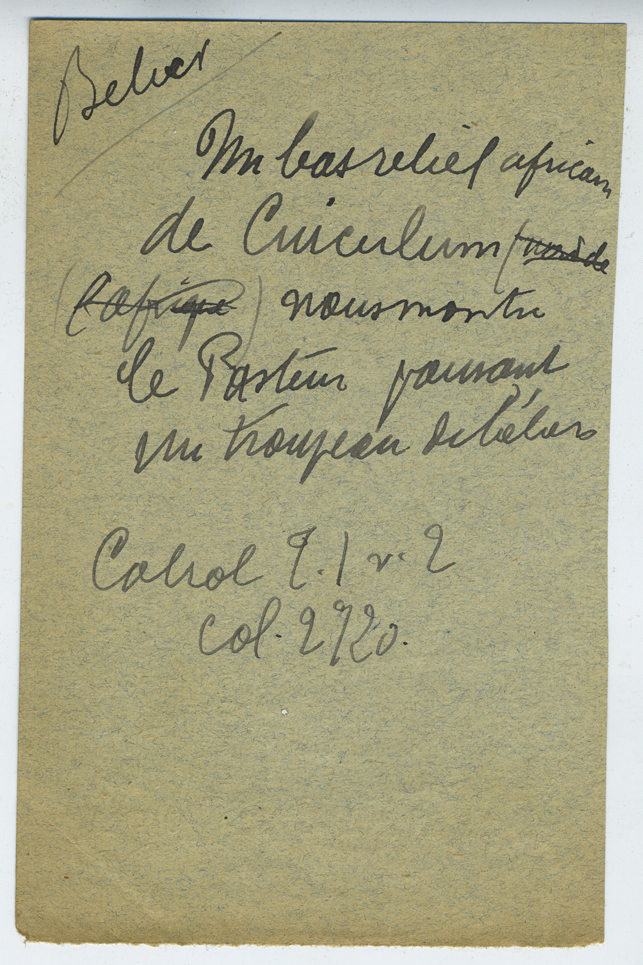 Belier
Un bas relief africain
de Cuiculum (nord de
(l'afrique) nous montre
le Pasteur poussant
un troupeau de béliers
Cabrol T. I v. 2
col. 2720.